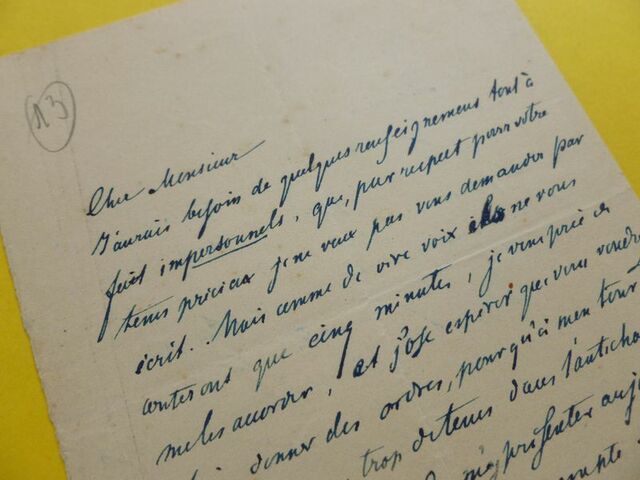 13
Cher Monsieur
J'aurais besoin de quelques renseignemens tout à
fait impersonnels, que, par respect pour votre
tems précieux je ne veux pas vous demander par
écrit. Mais comme de vive voix ils ne vous
couteront que cinq minutes, je vous prie de
me les accorder, et j'ose espérer que vous voudre
donner des ordres, pour qu'à mon tour
trop de tems dans l'anticha
présenter auj